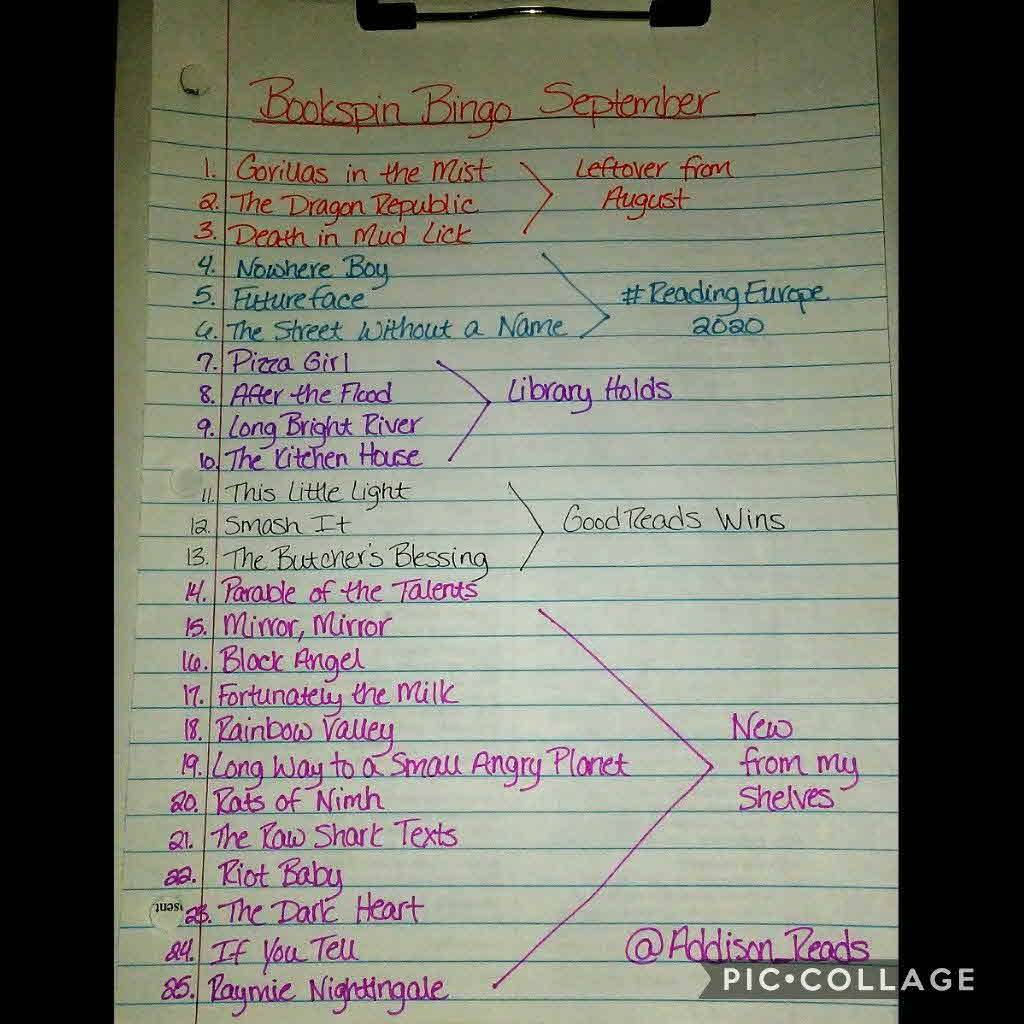 Bookspin Bingo September
1. Gorillas in the Mist
2. The Dragon Republic
3. Death in Mud Lick
Leftover from
August
4. Nowhere Boy
5. Futureface
6. The Street Without a Name
#ReadingEurope
2020
7. Pizza Girl
8. After the Flood
9. Long Bright River
10. The Kitchen House
Library Holds
11. This Little Light
12. Smash It
13. The Butcher's Blessing
GoodReads Wins
14. Parable of the Talents
15. Mirror, Mirror
16. Black Angel
17. Fortunately the Milk
18. Rainbow Valley
19. Long Way to a Small Angry Planet
20. Rats of Nimh
21. The Raw Shark Texts
22. Riot Baby
23. The Dark Heart
24. If You Tell
25. Raymie Nightingale
New
from my
Shelves
@Addison_Reads
PIC•COLLAGE